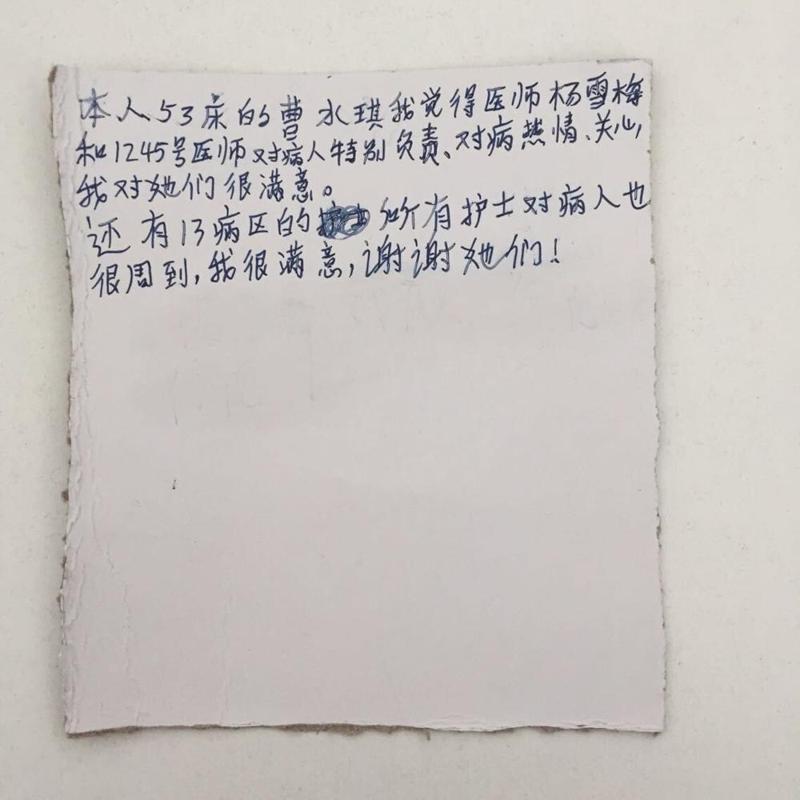 本人53床的曹水琪我觉得医师杨雪梅
和1245号医师对病人特别负责、对病热情、关心,
我对她们很满意。
还有13病区的所有护士对病人也
很周到,我很满意,谢谢她们!